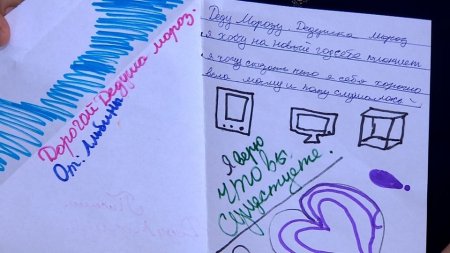 Дорогой Дедушка мороз.
От: Любины
Деду Морозу. Дедушка мороз
я хочу на новый год себе планшет
я хочу сказать что я себя хорошо
вела маму и папу слушалась
Я верю
что вы
существуете.